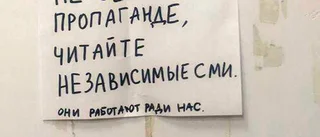 ПРОПАГАНДЕ,
ЧИТАЙТЕ
НЕЗАВИСИМЫЕ СМИ.
ОНИ РАБОТАЮТ РАДИ НАС.